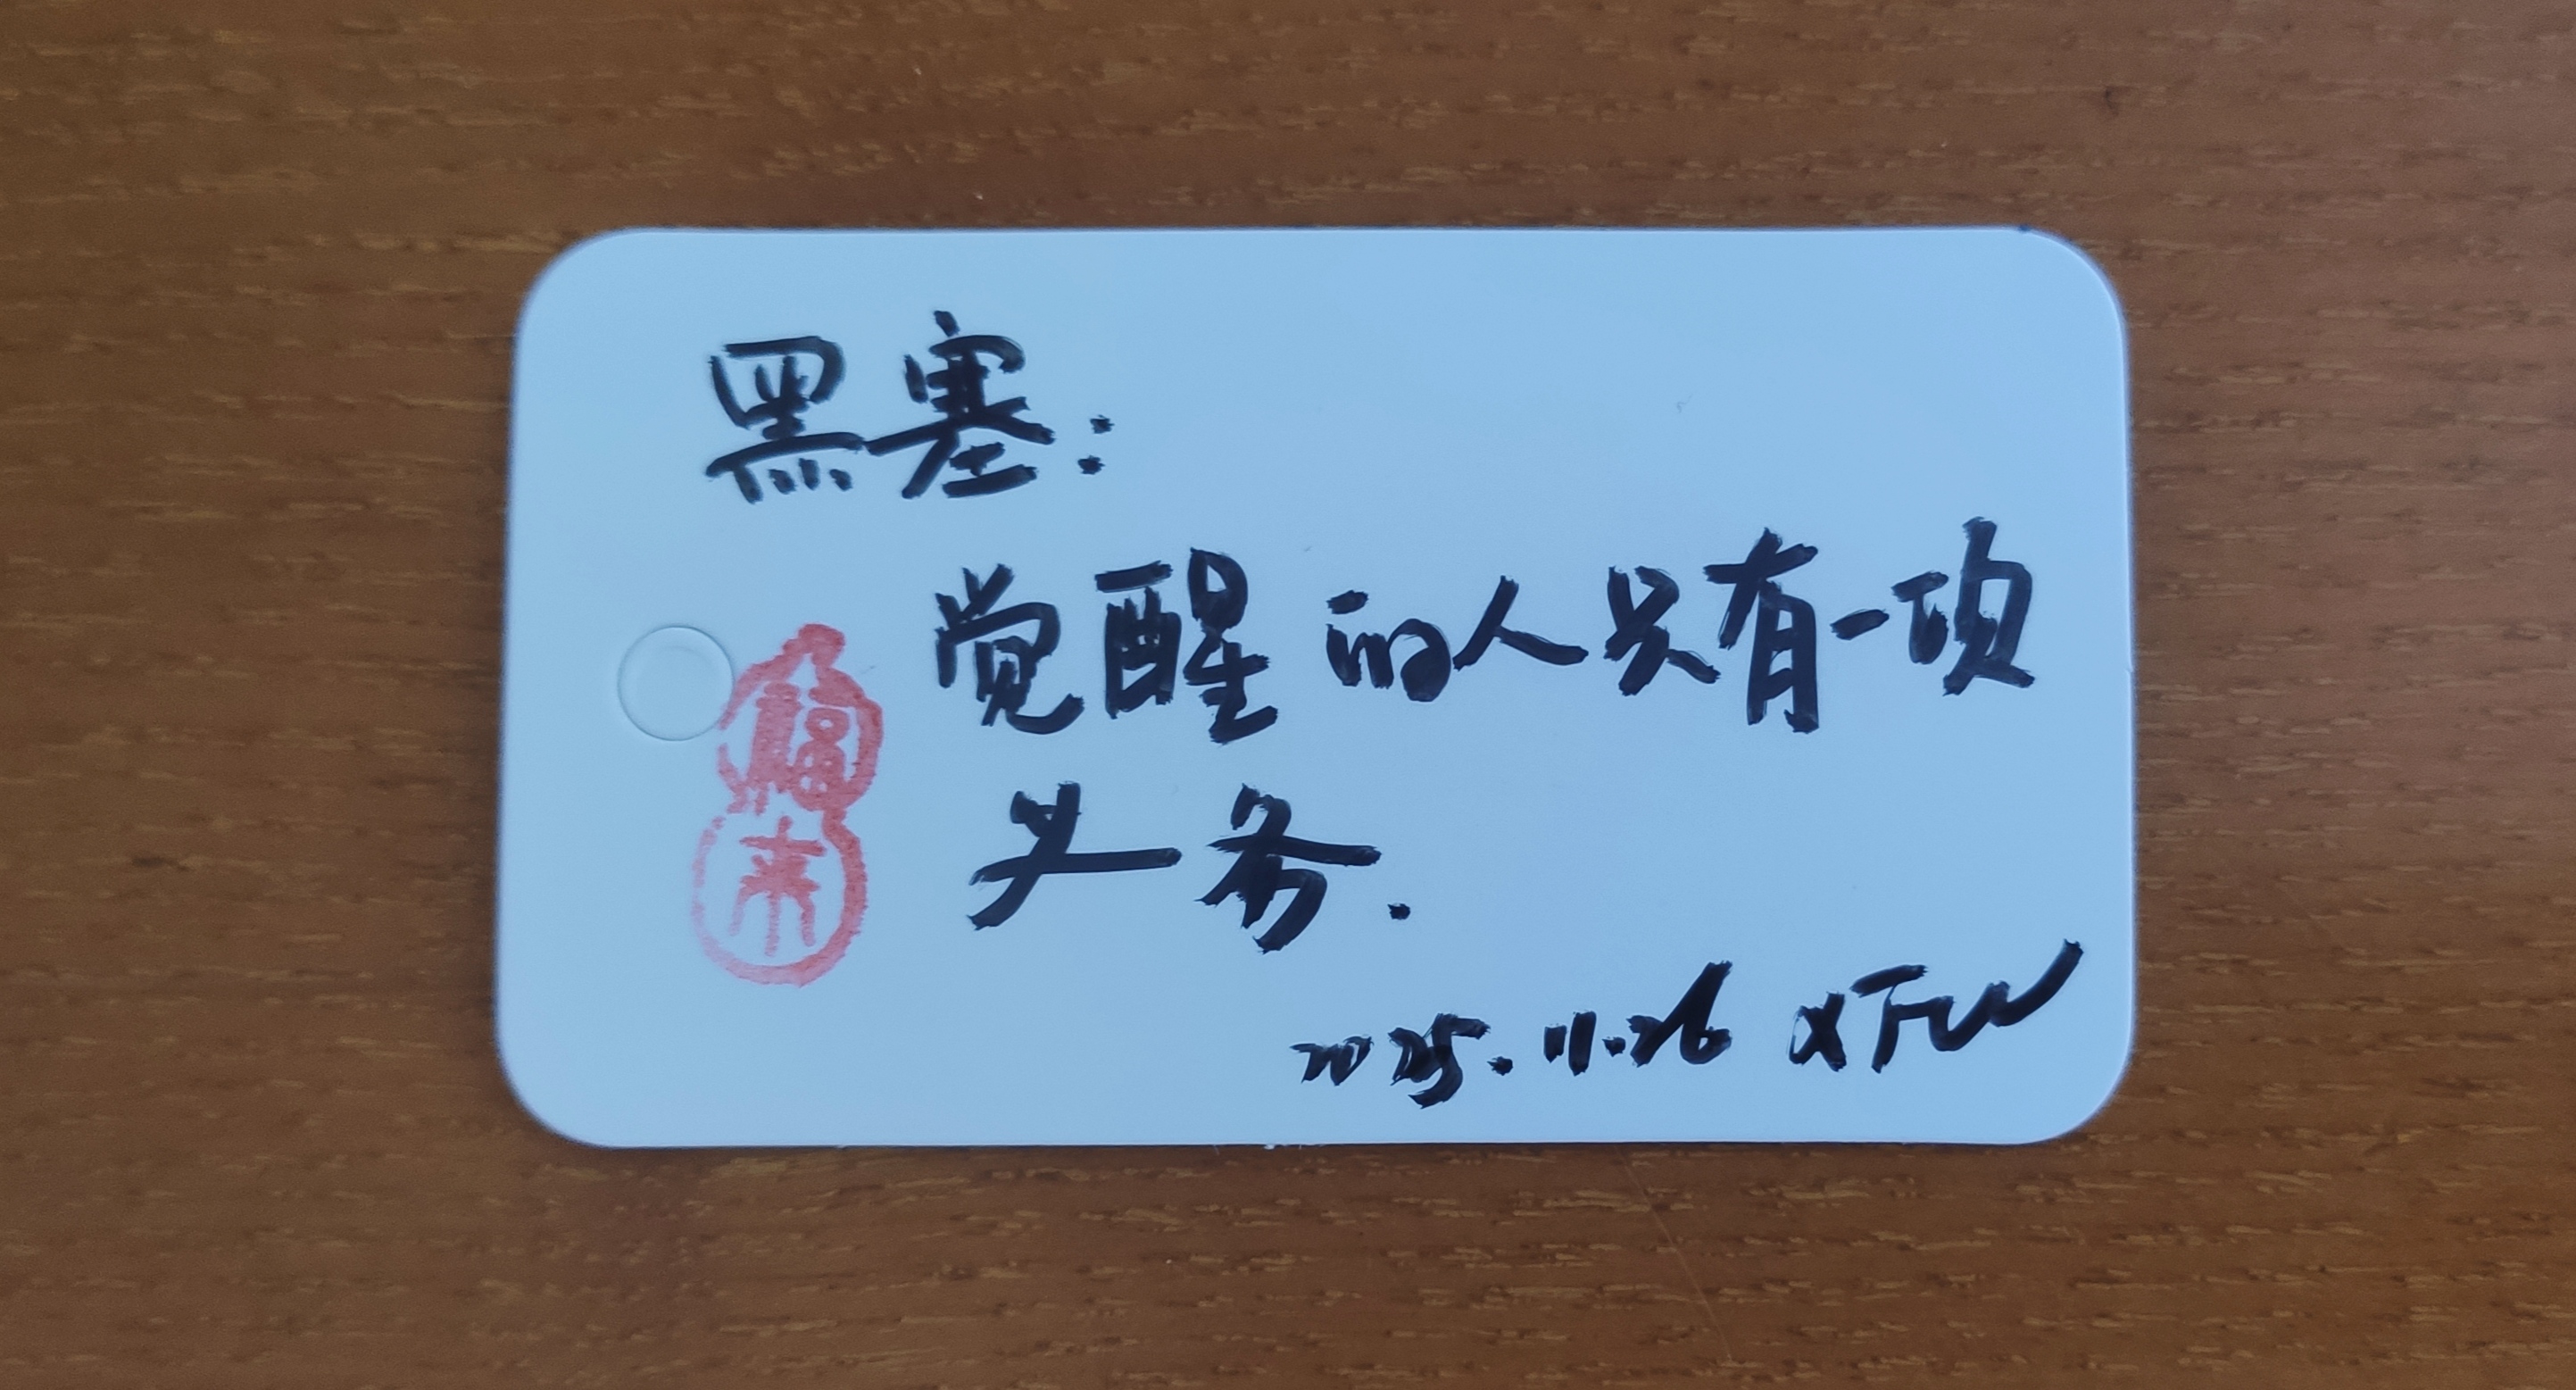 黑塞:
觉醒的人只有一项
义务.
2025.11.26 XTW
福来